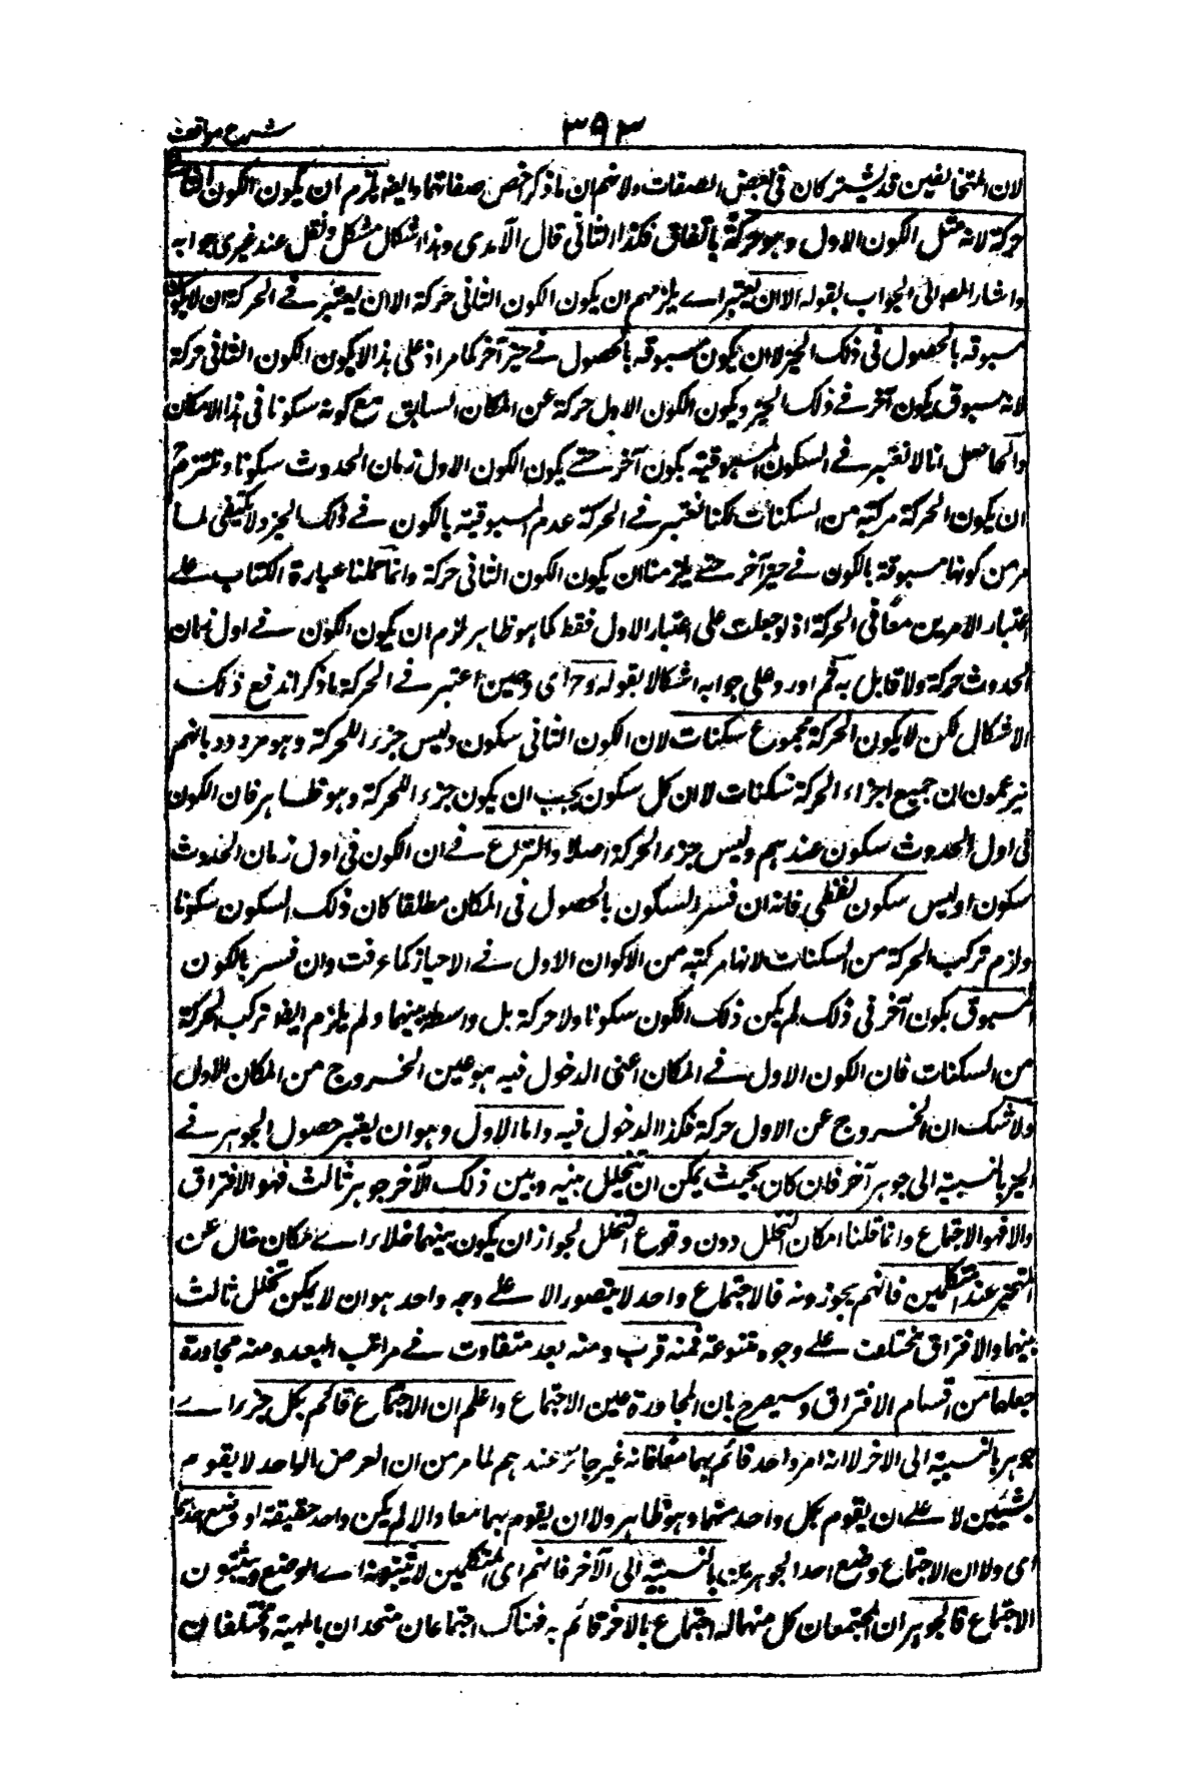 شرح مواقف
٣٩٣
لان المتخالفين قد يشتركان فى بعض الصفات ولا نعم ان ما ذكر اخص صفاتهما وايضا يلزم ان يكون الكون الثانى
حركة لانه مثل الكون الاول وهو حركة باتفاق فكذا الثانى قال الآمدى وهذا اشكال مشكل ولعل عند غيرى جوابه
واشار المص الى الجواب بقوله الا ان يعتبر اے يلزمهم ان يكون الكون الثانى حركة الا ان يعتبر فے الحركة ان لا يكون
مسبوقة بالحصول فى ذلك الحيز لا ان يكون مسبوقة بالحصول فے حيز آخر كما مر اذ على هذا لا يكون الكون الثانى حركة
لانه مسبوق بكون آخر فے ذلك الحيز ويكون الكون الاول حركة عن المكان السابق مع كونه سكونا فى هذا المكان
والحاصل انا لا نعتبر فے السكون المسبوقية بكون آخر حتے يكون الكون الاول زمان الحدوث سكونا ونلتزم
ان يكون الحركة مركبة من السكنات لكنا نعتبر فے الحركة عدم المسبوقية بالكون فے ذلك الحيز ولا يكتفى لما
مر من كونها مسبوقة بالكون فے حيز آخر حتے يلزمنا ان يكون الكون الثانى حركة وانما حملنا عبارة الكتاب علے
اعتبار الامرين معا فى الحركة اذ لو حملت على اعتبار الاول فقط كما هو ظاهر لزم ان يكون الكون فے اول زمان
الحدوث حركة ولا قابل به ثم اورد على جوابه اشكالا بقوله وح اى وحين اعتبر فے الحركة ما ذكر اندفع ذلك
الاشكال لكن لا يكون الحركة مجموع سكنات لان الكون الثانى سكون وليس جزء للحركة وهو مردود بانهم
يزعمون ان جميع اجزاء الحركة سكنات لا ان كل سكون يجب ان يكون جزء للحركة وهو ظاهر فان الكون
فى اول الحدوث سكون عندهم وليس جزء الحركة اصلا والنزاع فے ان الكون فى اول زمان الحدوث
سكون او ليس سكون لفظى فانه ان فسر السكون بالحصول فى المكان مطلقا كان ذلك السكون سكونا
ولزم تركب الحركة من السكنات لانها مركبة من الاكوان الاول فے الاحياز كما عرفت وان فسر بالكون
المسبوق بكون آخر فى ذلك لم يكن ذلك الكون سكونا ولا حركة بل واسطة بينهما ولم يلزم ايضا تركب الحركة
من السكنات فان الكون الاول فے المكان اعنى الدخول فيه هو عين الخروج من المكان الاول
ولا شك ان الخروج عن الاول حركة فكذا الدخول فيه واما الاول وهو ان يعتبر حصول الجوهر فے
الحيز بالنسبة الى جوهر آخر فان كان بحيث يمكن ان يتخلل بينه وبين ذلك الآخر جوهر ثالث فهو الافتراق
والا فهو الاجتماع وانما قلنا امكان التخلل دون وقوع التخلل لجواز ان يكون بينهما خلاء اے مكان خال عن
المتحيز عند المتكلمين فانهم يجوزونه فالاجتماع واحد لا يتصور الا علے وجه واحد هو ان لا يمكن تخلل ثالث
بينهما والافتراق مختلف علے وجوه متنوعة فمنه قرب ومنه بعد متفاوت فے مراتب البعد ومنه مجاورة
جعلها من اقسام الافتراق وسيصرح بان المجاورة عين الاجتماع واعلم ان الاجتماع قائم بكل جزء اے
جوهر بالنسبة الى الاخر لا انه امر واحد قائم بهما معا فانه غير جائز عندهم لما مر من ان العرض الواحد لا يقوم
بشيئين لا علے ان يقوم بكل واحد منهما وهو ظاهر ولا ان يقوم بهما معا والا لم يكن واحد حقيقة او وضع احدهما
اى ولا ان الاجتماع وضع احد الجوهرين بالنسبة الى الآخر فانهم اى المتكلمين لا يثبتونه اے الوضع ويثبتون
الاجتماع فالجوهران المجتمعان كل منهما له اجتماع بالاخر قائم به فهناك اجتماعان متحدان بالمهية ومختلفان